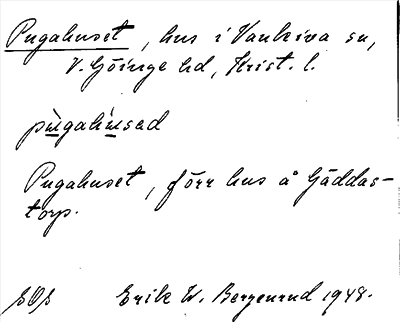 Pugahuset, hus i Vankiva sn,
V. Göinge hd, Krist. l.
pùgahùsad
Pugahuset, förr hus å Gäddas-
torp.
Erik W. Bergenrud 1948.